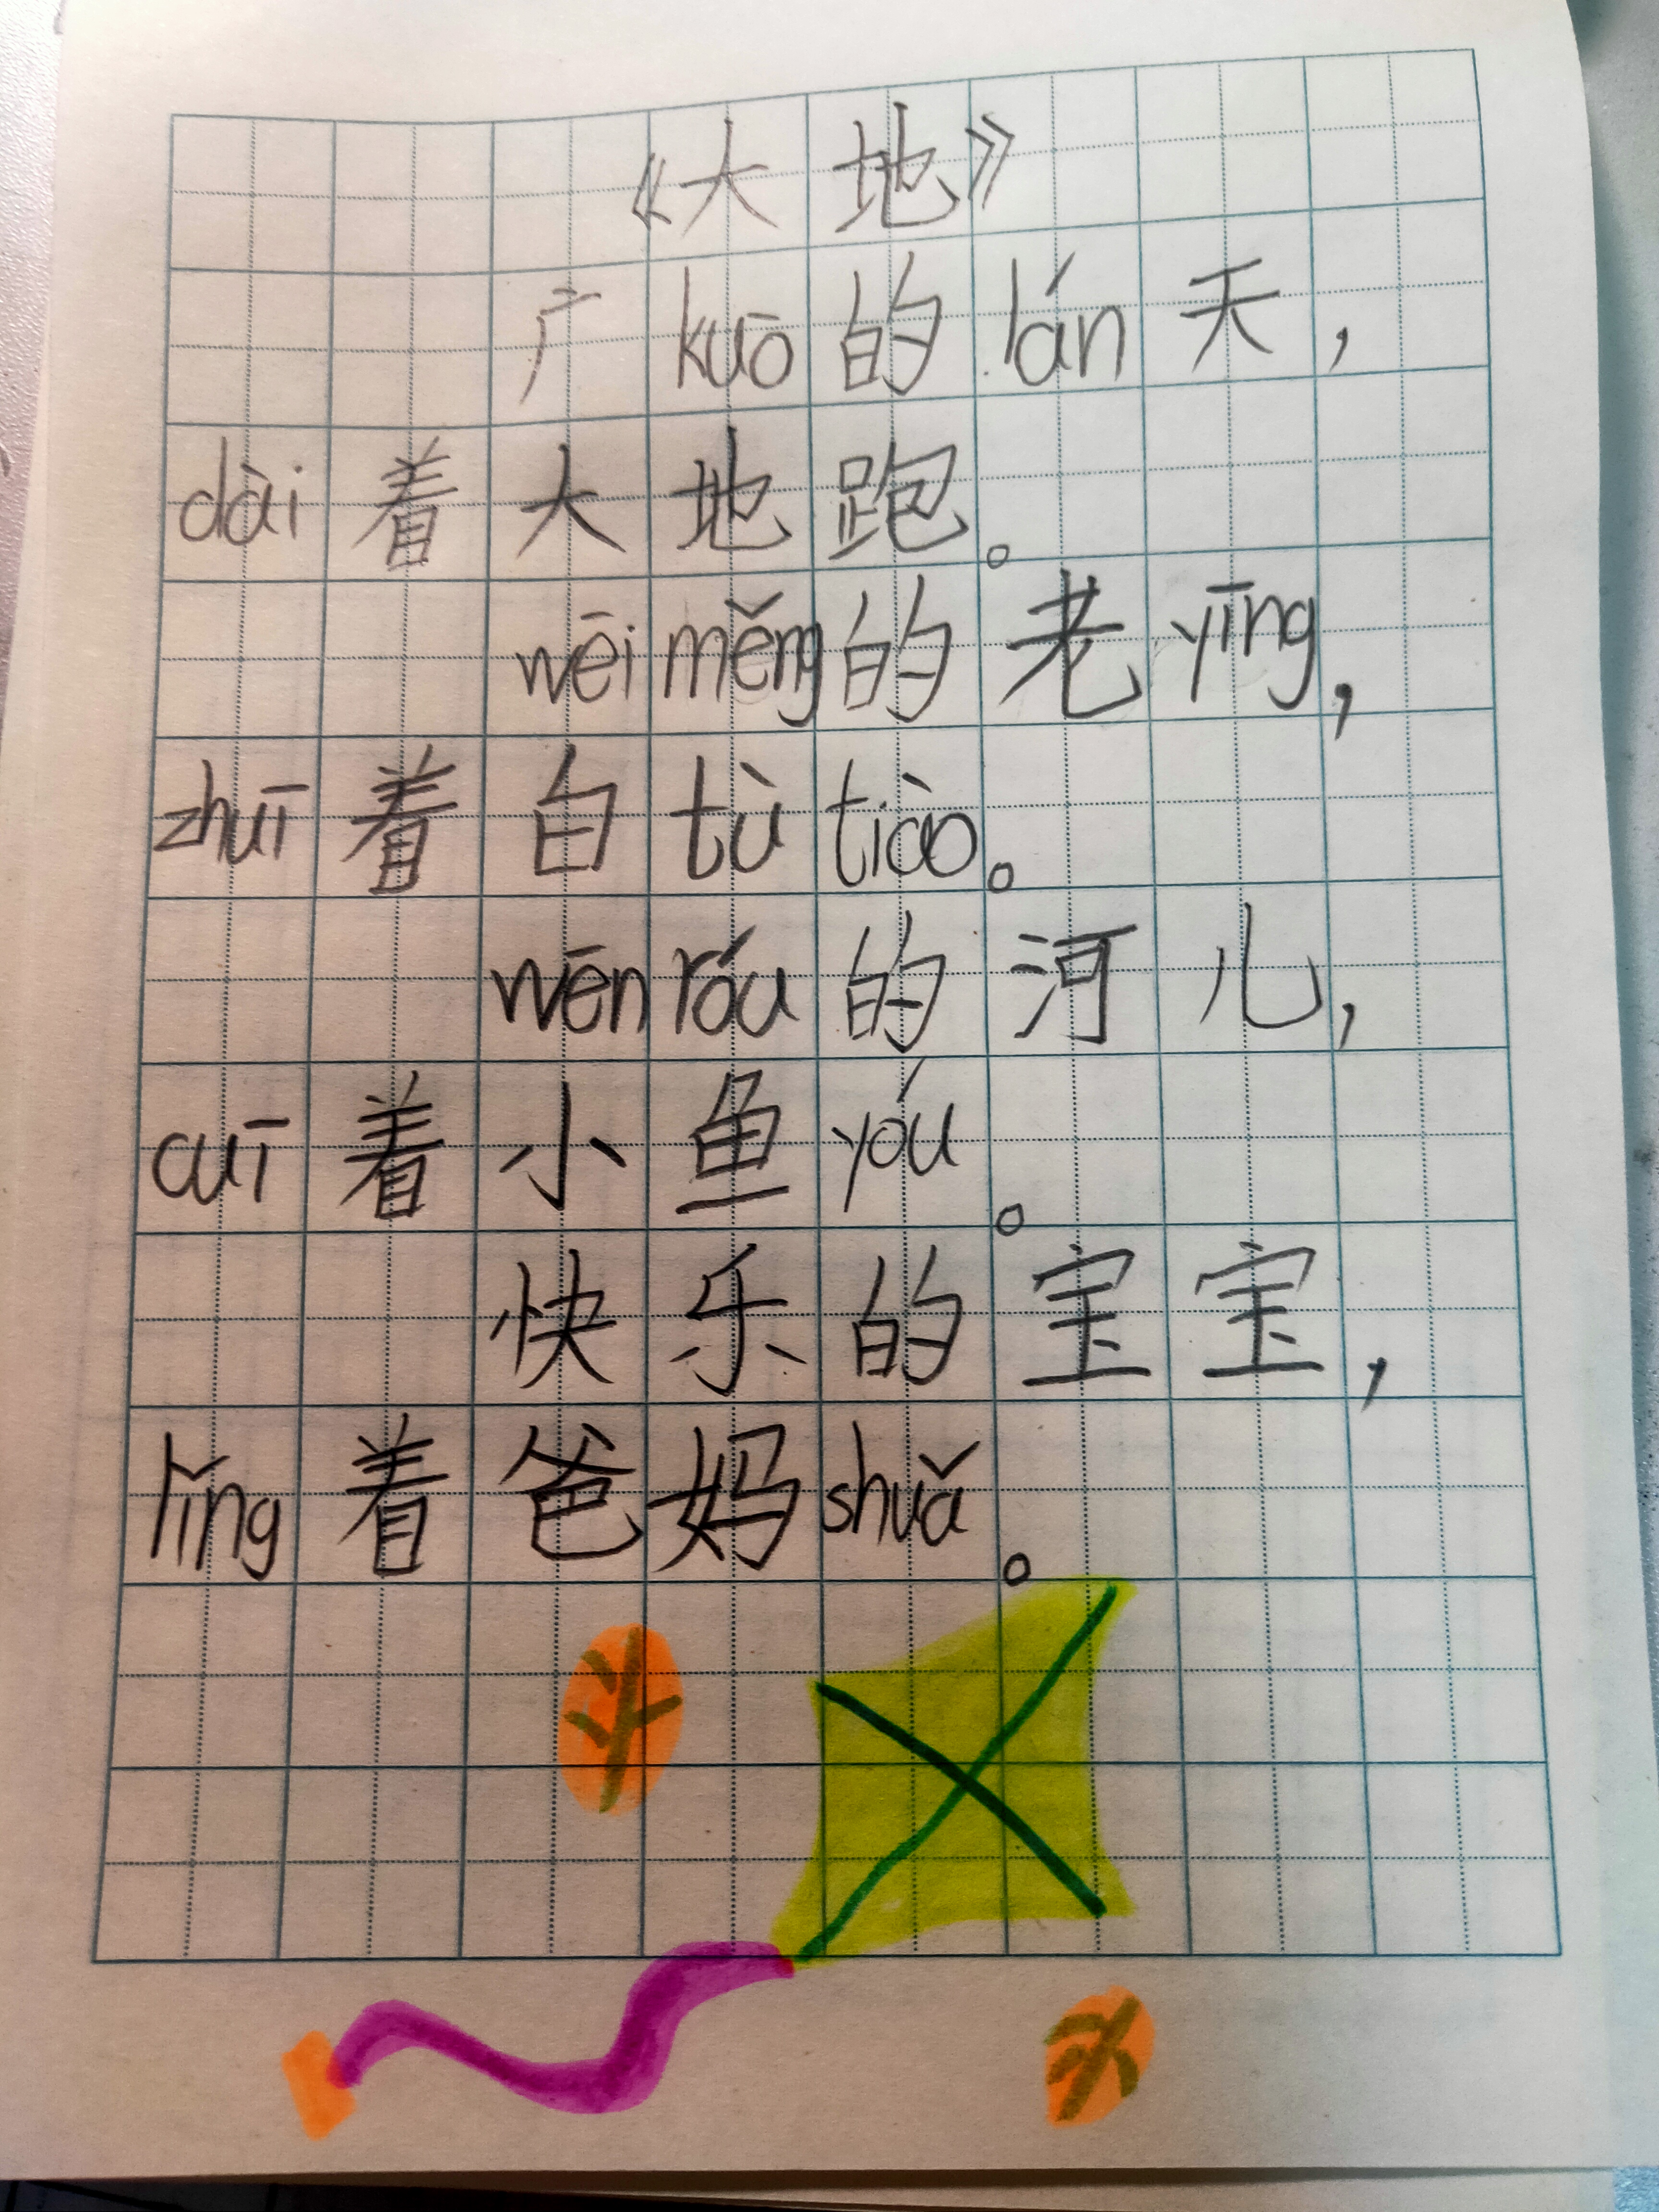 《大地》
广kuō的lán天，
dài着大地跑。
wēiměng的老yīng，
zhuī着白tùtiào。
wēnróu的河儿，
cuī着小鱼yóu。
快乐的宝宝，
lǐng着爸妈shuǎ。